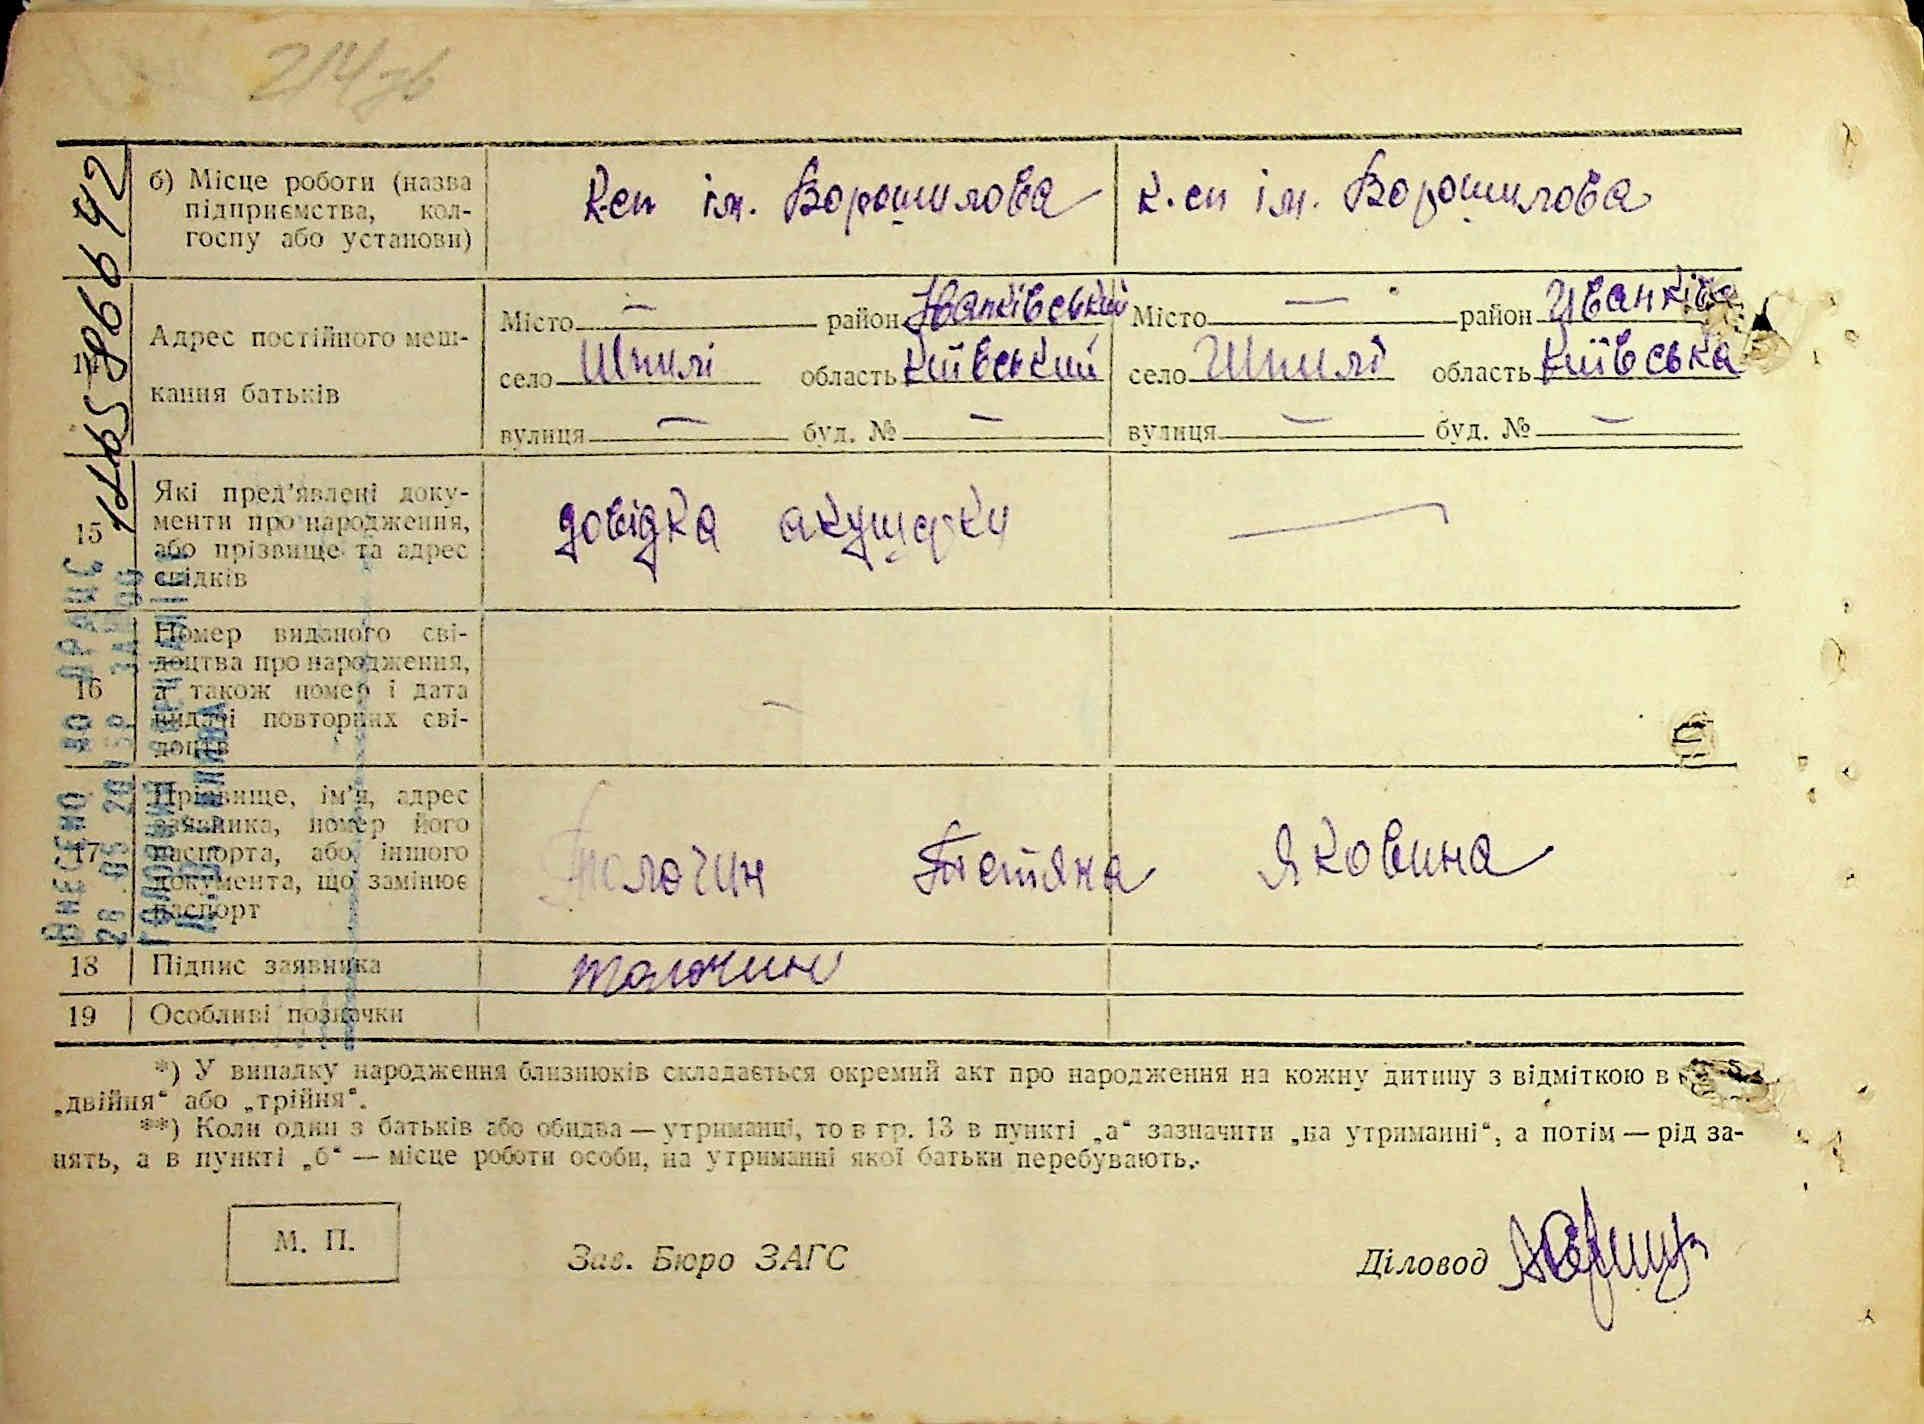 214зв
б) Місце роботи (назва підприємства, колгоспу або установи)
К-сп ім. Ворошилова
К.сп ім. Ворошилова
14
Адрес постійного мешкання батьків
Місто — район Іванківський
село Шпилі область Київський
вулиця — буд. № —
Місто — район Иванків
село Шпилі область Київська
вулиця — буд. № —
15
Які пред’явлені документи про народження, або прізвище та адрес свідків
довідка акушерки
—
16
Номер виданого свідоцтва про народження, а також номер і дата видачі повторних свідоцтв
—
17
Прізвище, ім’я, адрес заявника, номер його паспорта, або іншого документа, що замінює паспорт
Толочин Тетяна Яковина
18
Підпис заявника
Толочин
19
Особливі позначки
*) У випадку народження близнюків складається окремий акт про народження на кожну дитину з відміткою в
„двійня“ або „трійня“.
**) Коли один з батьків або обидва — утриманці, то в гр. 13 в пункті „а“ зазначити „на утриманні“, а потім — рід за-
нять, а в пункті „б“ — місце роботи особи, на утриманні якої батьки перебувають.
М. П.
Зав. Бюро ЗАГС
Діловод
Внесено до ДРАЦС